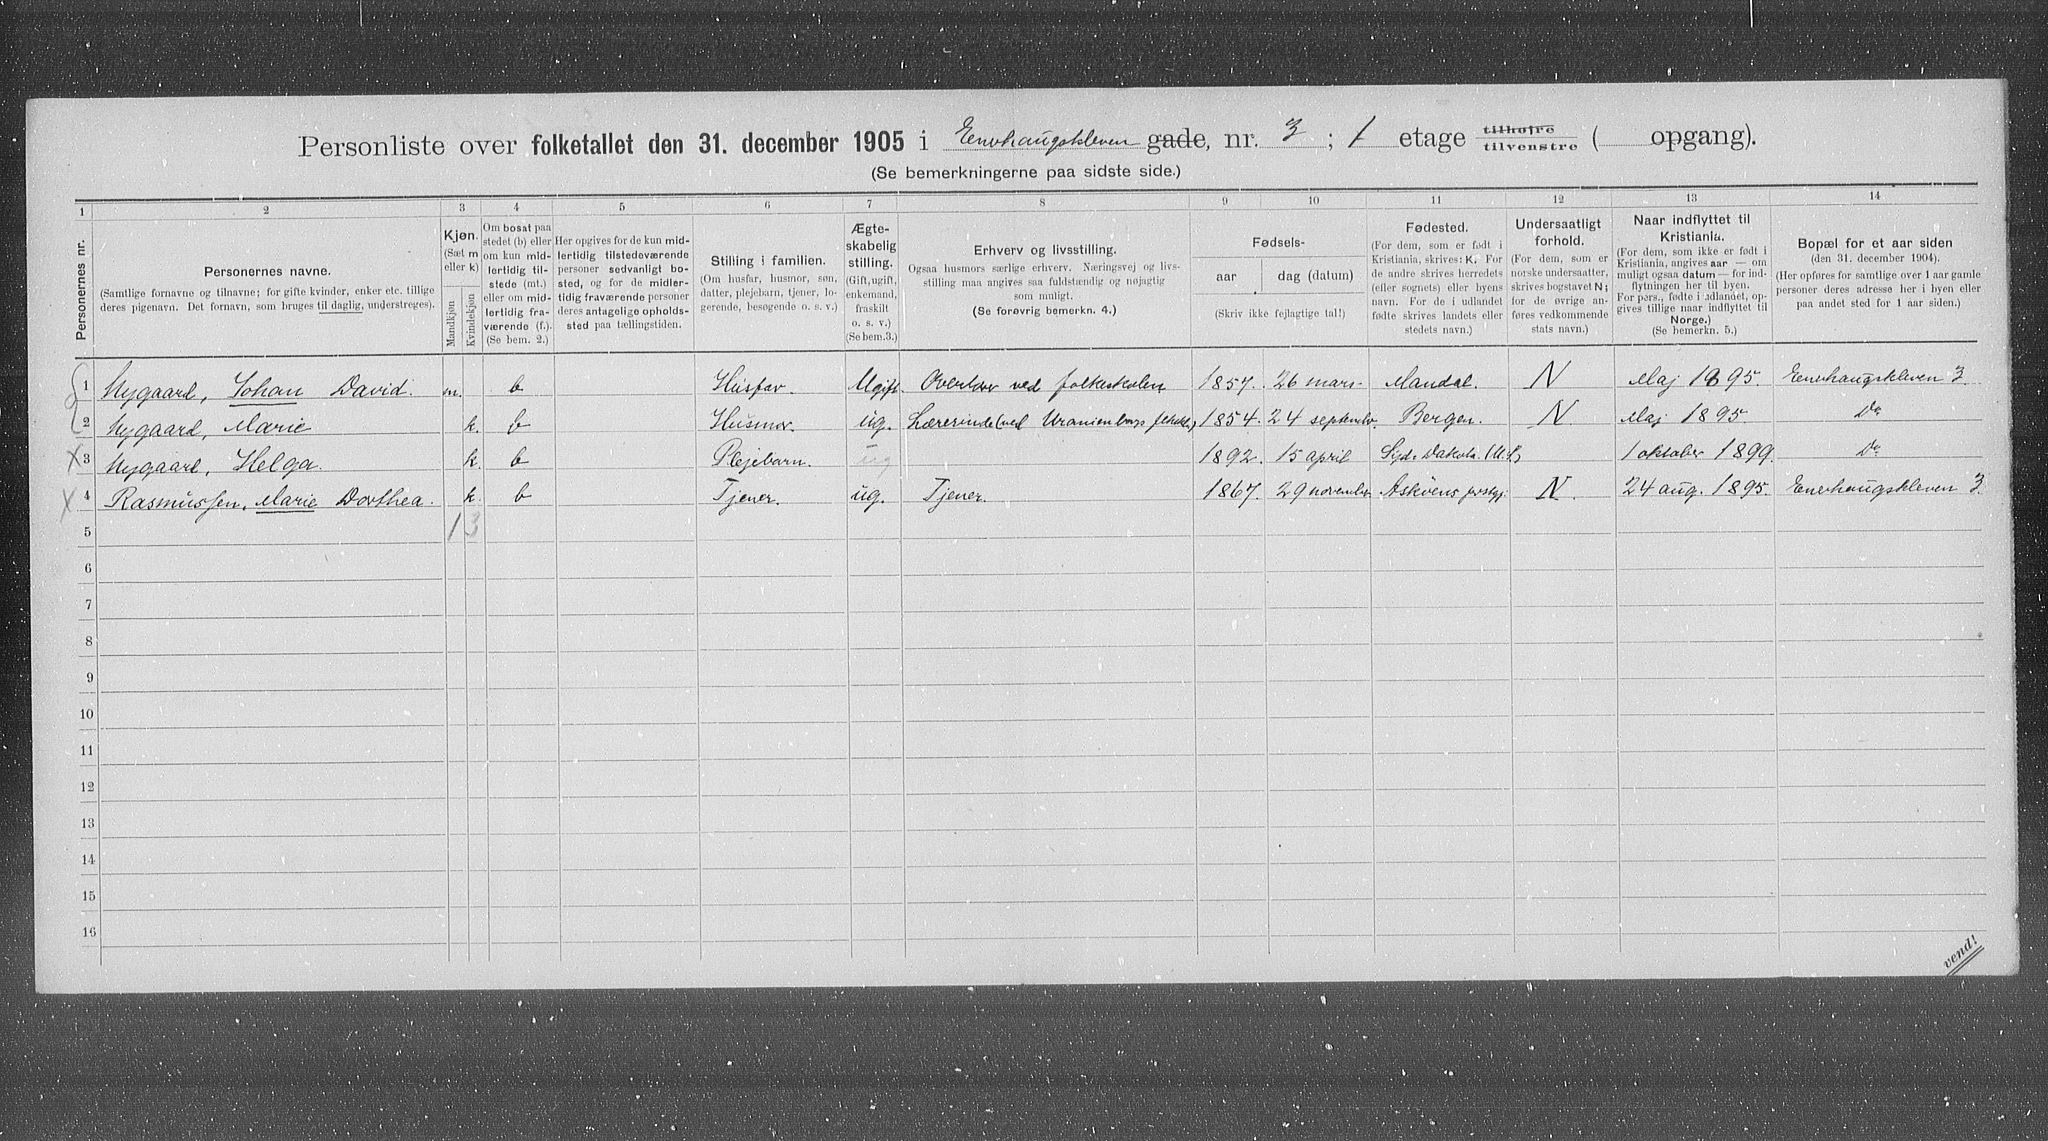 Personliste over folketallet den 31. december 1905 i Enerhaugskleven gade, nr. 3 ; 1 etage tilhøjre tilvenstre ( opgang).
(Se bemerkningerne paa sidste side.)
1 2 3 4 5 6 7 8 9 10 11 12 13 14
Personernes nr.
Personernes navne.
(Samtlige fornavne og tilnavne; for gifte kvinder, enker etc. tillige
deres pigenavn. Det fornavn, som bruges til daglig, understreges).
Kjøn.
(Sæt m
eller k)
Mandkjøn
Kvindekjøn
Om bosat paa
stedet (b) eller
om kun mid-
lertidig til-
stede (mt.)
eller om mid-
lertidig fra-
værende (f.).
(Se bem. 2.)
Her opgives for de kun mid-
lertidig tilstedeværende
personer sedvanligt bo-
sted, og for de midler-
tidig fraværende personer
deres antagelige opholds-
sted paa tællingstiden.
Stilling i familien.
(Om husfar, husmor, søn,
datter, plejebarn, tjener, lo-
gerende, besøgende o. s. v.)
Ægte-
skabelig
stilling.
(Gift, ugift,
enkemand,
fraskilt
o. s. v.)
(Se bem.3.)
Erhverv og livsstilling.
Ogsaa husmors særlige erhverv. Næringsvej og livs-
stilling maa angives saa fuldstændig og nøjagtig
som muligt.
(Se forøvrig bemerkn. 4.)
Fødsels-
aar dag (datum)
(Skriv ikke fejlagtige tal!)
Fødested.
(For dem, som er født i
Kristiania, skrives: K. For
de andre skrives herredets
(eller sognets) eller byens
navn. For de i udlandet
fødte skrives landets eller
stedets navn.)
Undersaatligt
forhold.
(For dem, som er
norske undersaatter,
skrives bogstavet N;
for de øvrige an-
føres vedkommende
stats navn.)
Naar indflyttet til
Kristiania.
(For dem, som ikke er født i
Kristiania, angives aar — om
muligt ogsaa datum — for ind-
flytningen her til byen.
For pers., fødte i udlandet, op-
gives tillige naar indflyttet til
Norge.)
(Se bemerkn. 5.)
Bopæl for et aar siden
(den 31. december 1904).
(Her opføres for samtlige over 1 aar gamle
personer deres adresse her i byen eller
paa andet sted for 1 aar siden.)
1 Nygaard, Johan David. m. b Husfar. Ugift. Overlærer ved folkeskolen 1857. 26 mars. Mandal. N Maj 1895. Enerhaugskleven 3.
2 Nygaard, Marie k. b Husmor. ug. Lærerinde (ved Uranienborg 1854. 24 septembr. Bergen. N Maj 1895. Do
3 Nygaard, Helga. k. b Plejebarn. ug 1892. 15 april Syd-Dakota. 1 oktober 1899. Do
4 Rasmussen, Marie Dorthea. k. b Tjener. ug. Tjener. 1867. 29 november Askvens prstgj. N. 24 aug. 1895. Enerhaugskleven 3.
5 1 3
6
7
8
9
10
11
12
13
14
15
16
vend!